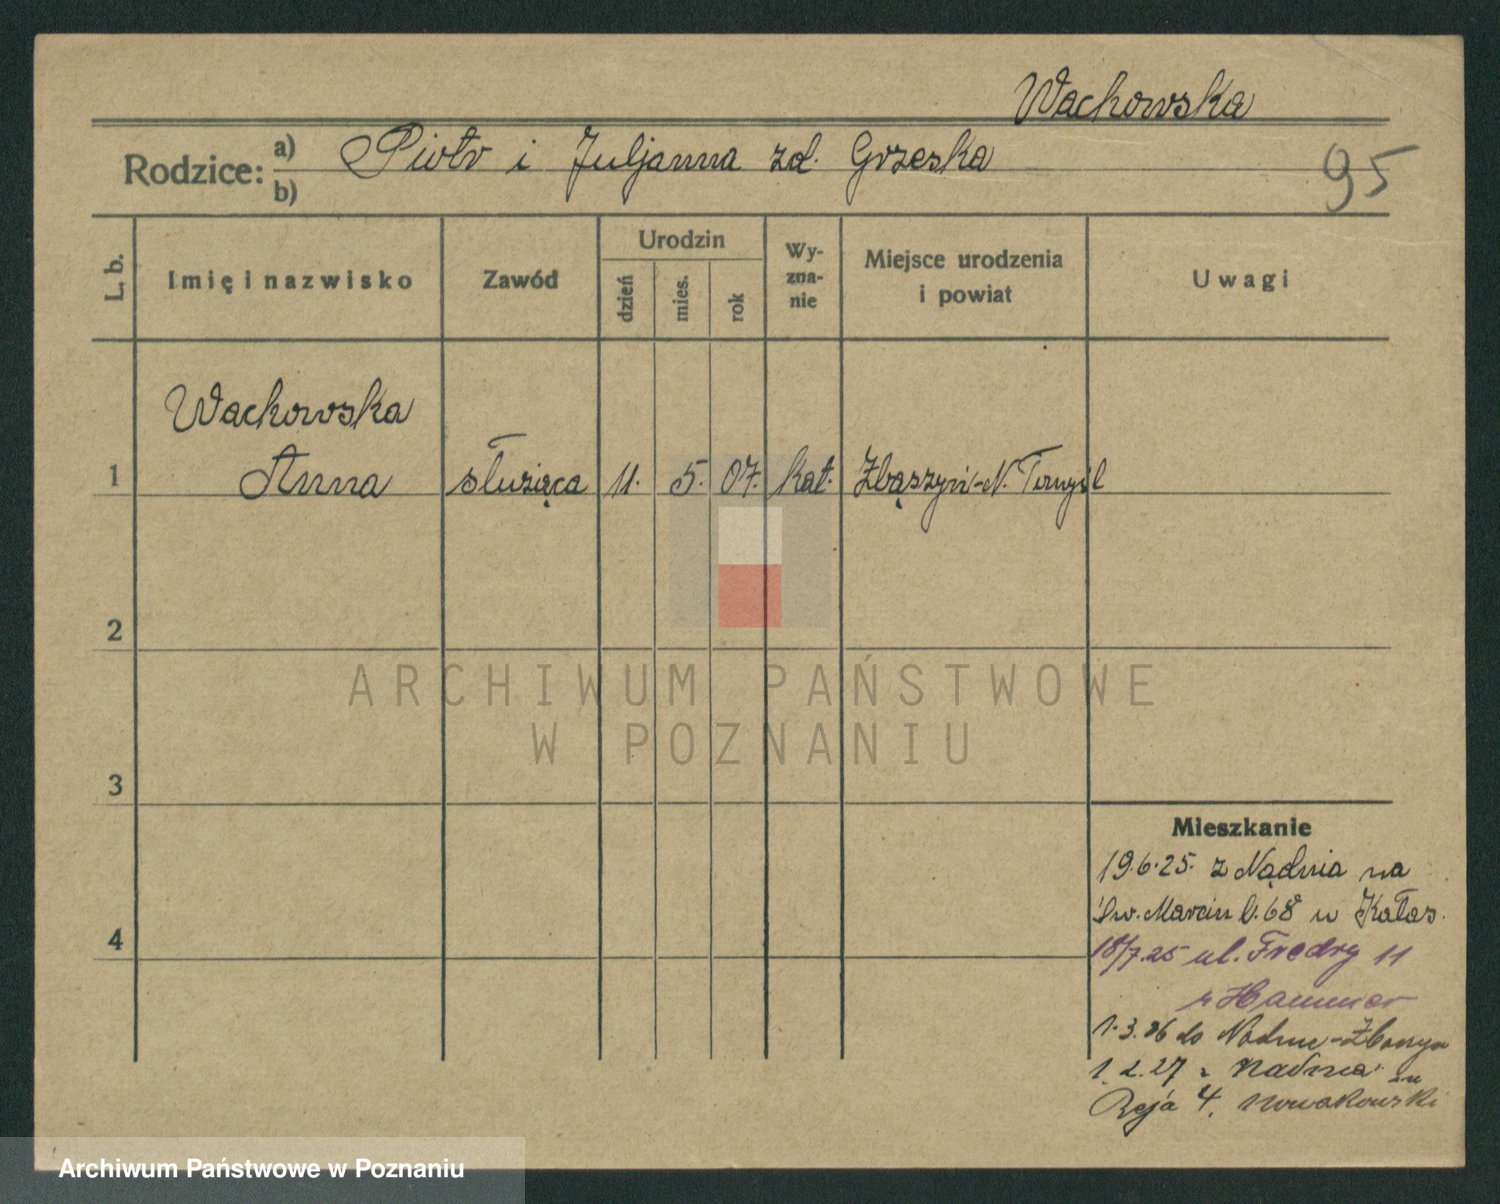 Wachowska
Rodzice: a) Piotr i Juljanna zd. Grzeska
b)
95
L. b.
Imię i nazwisko
Zawód
Urodzin
dzień
mies.
rok
Wy-
zna-
nie
Miejsce urodzenia
i powiat
Uwagi
Wachowska
1 Anna służąca 11. 5. 07. kat. Zbąszyń-N. Tomyśl
2
ARCHIWUM PAŃSTWOWE
W POZNANIU
3
4
Mieszkanie
19.6.25. z Nądnia na
Św. Marcin 68 u
18/7.25 ul. Fredry 11
Hammer
1.3.26 do
1.2.27 z Nadnia
Reja 4. Nowakowski
Archiwum Państwowe w Poznaniu